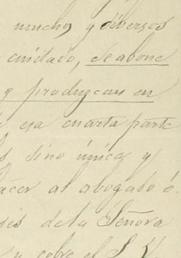 mucho y diversos
cuidado, se abone
y produzcan en
esa cuarta parte
sino única y
hacer al abogado ó
de la Señora
y cobre el S. V.